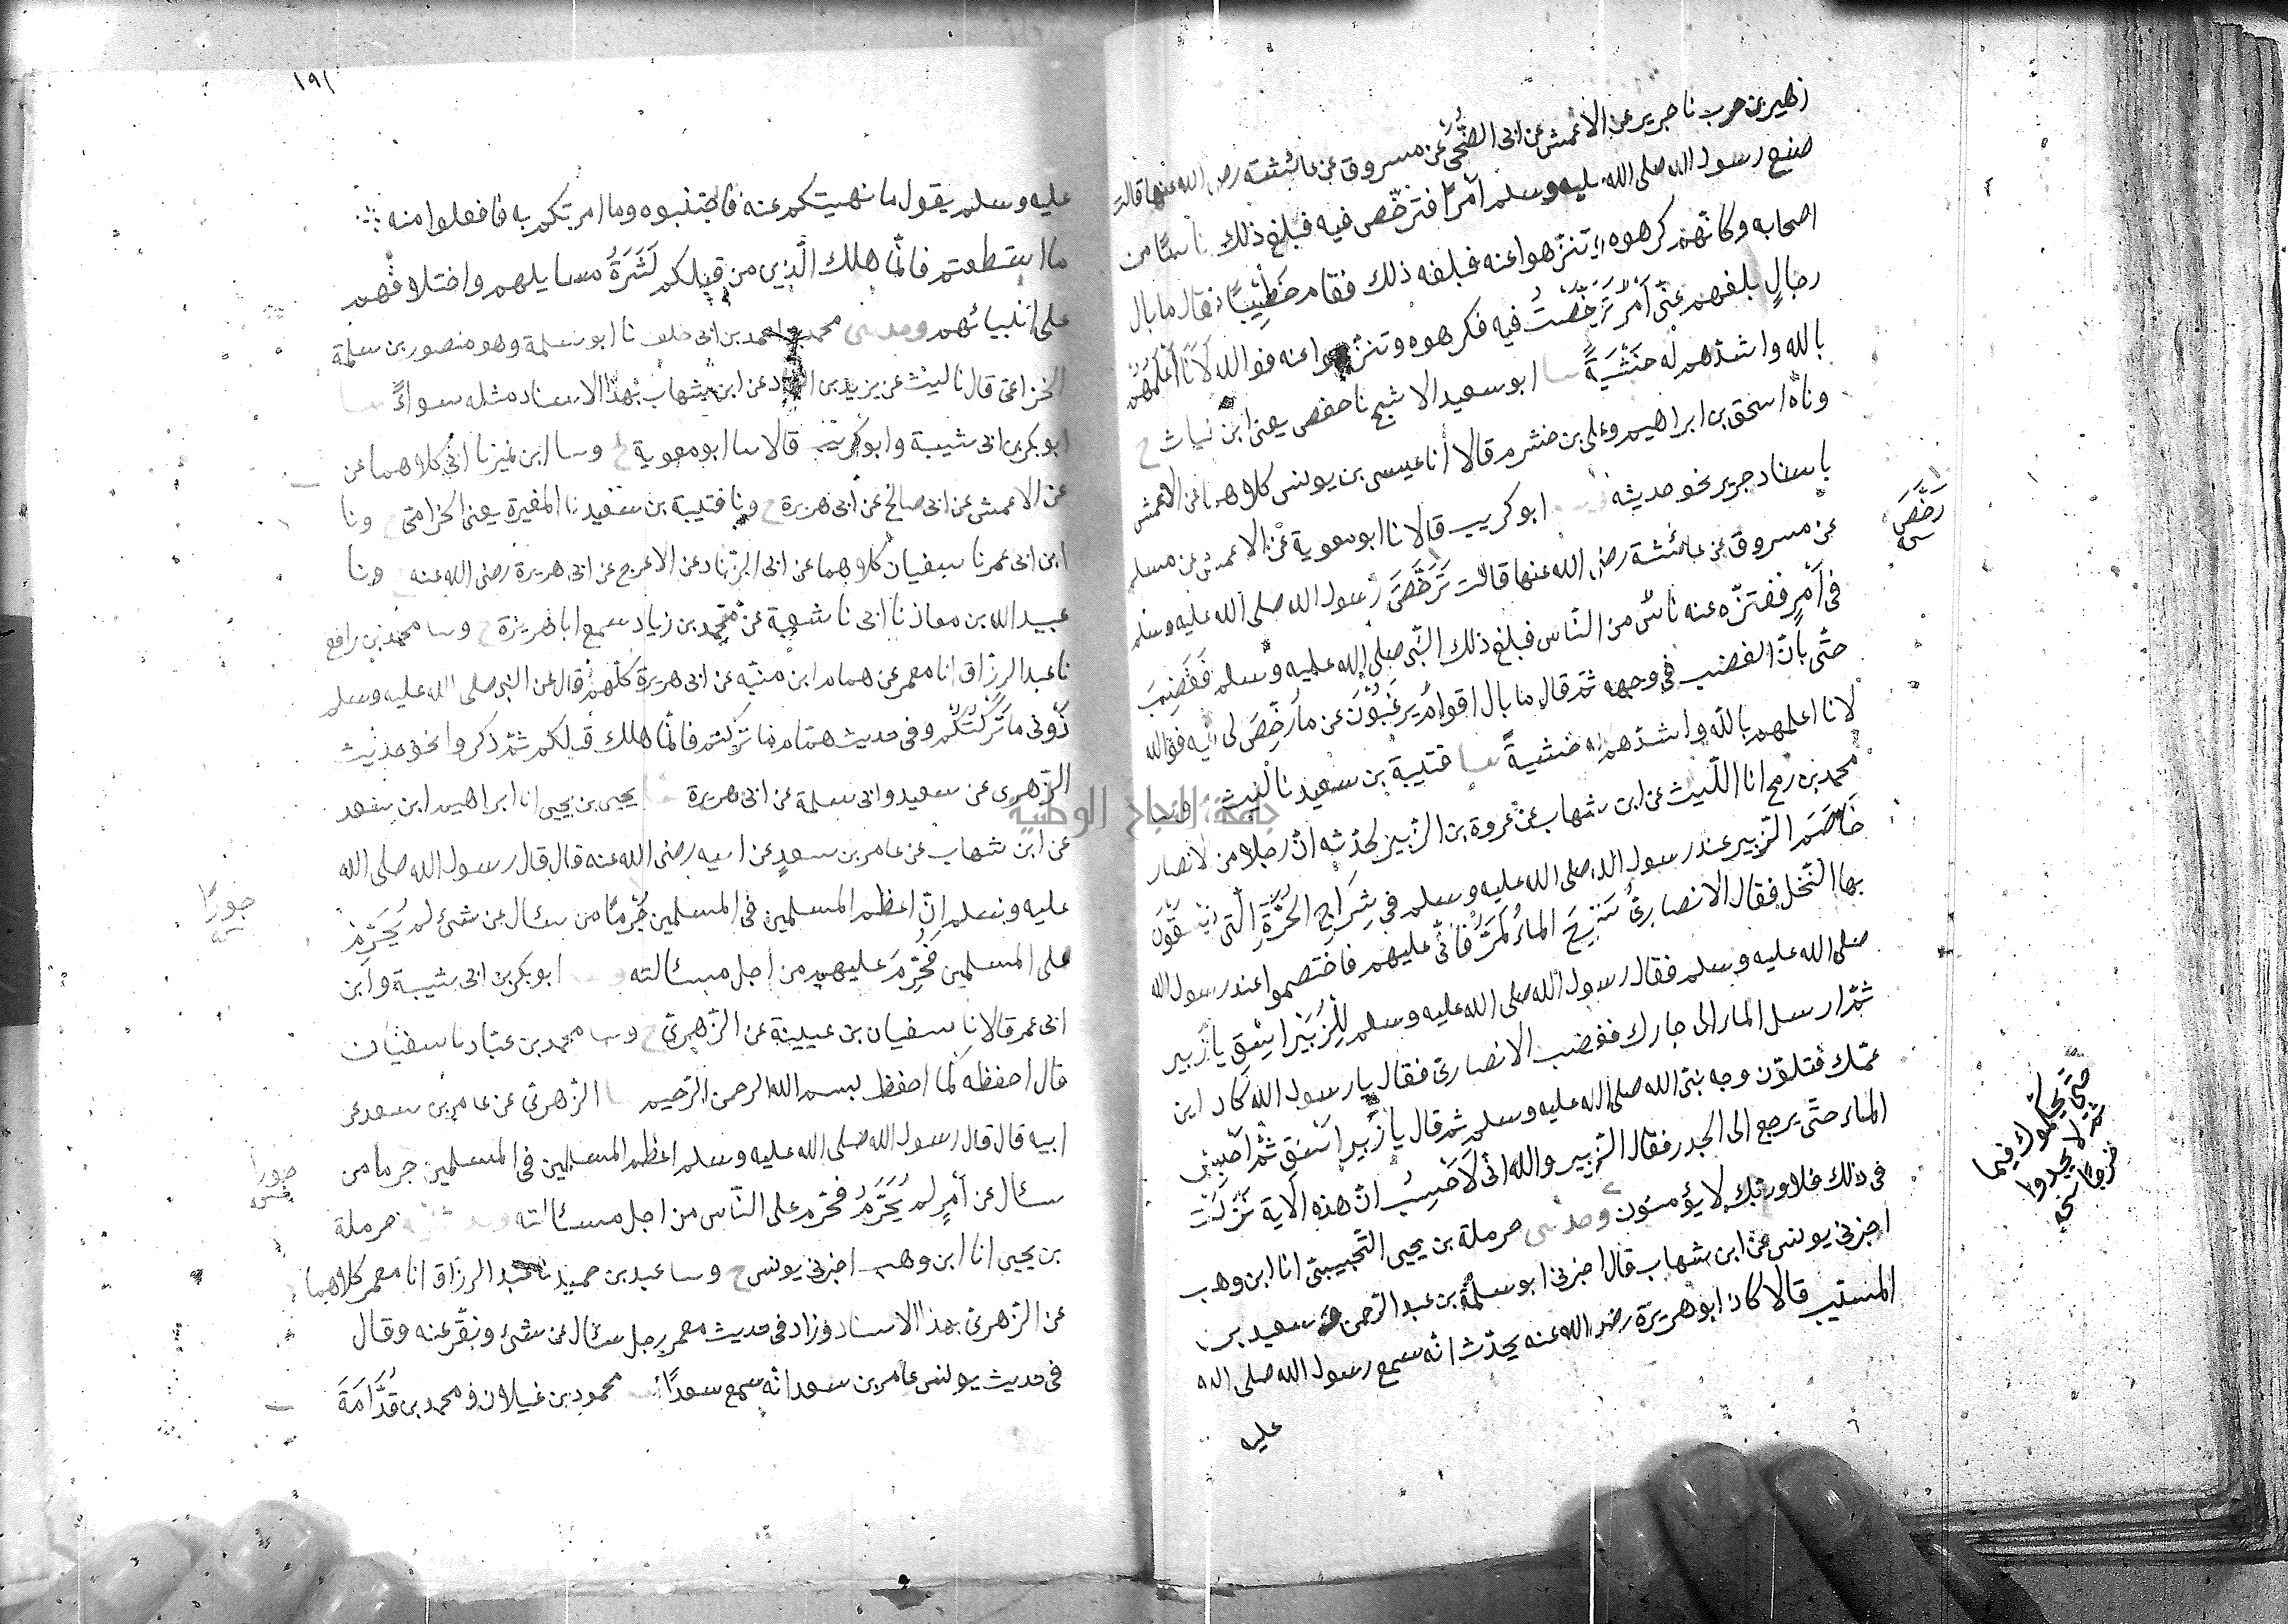 زهير بن حرب نا جرير عن الاعمش عن ابى الضُّحى عن مسروق عن عائشة رضى الله عنها قالت
صنع رسول الله صلى الله عليه وسلم امرًا فترخّص فيه فبلغ ذلك ناسًا من
اصحابه وكانّهم كرهوه وتنزّهوا عنه فبلغه ذلك فقام خَطِيْبًا فقال ما بال
رجالٍ بلغهم عنّى اَمْرٌ تَرَخَّصْتُ فيه فكرهوه وتنزّهوا عنه فوالله لَاَنَا اَعْلَمُهُمْ
بالله واشدّهم له خَشْيَةً ابو سعيد الاشج نا حفص يعنى ابن غياث ح
وناه اسحق بن ابراهيم وعلى بن خشرم قالا انا عيسى بن يونس كلاهما عن الاعمش
باسناد جرير نحو حديثه ابو كريب قالا نا ابو معوية عن الاعمش عن مسلم
عن مسروق عن عائشة رضى الله عنها قالت تَرَخَّصَ رسول الله صلى الله عليه وسلم
فى اَمْرٍ فتنزّه عنه ناسٌ من النّاس فبلغ ذلك النّبى صلى الله عليه وسلم فَغَضِبَ
حتّى بان الغضب فى وجهه ثمّ قال ما بال اقوامٍ يَرغَبُوْنَ عن ما رُخِّصَ لى فيه فوالله
لانا اعلمهم بالله واشدّهم له خشيةً قتيبة بن سعيد نا ليث وسا
محمد بن رمح انا اللّيث عن ابن شهاب عن عروة بن الزّبير حدّثه انّ رجلا من الانصار
خَاصَمَ الزّبير عند رسول الله صلى الله عليه وسلم فى شِرَاجِ الحَرَّةِ الّتى يَسْقُوْنَ
بها النّخل فقال الانصارىُّ سَرِّحِ الماءَ يَمُرُّ فابى عليهم فاختصموا عند رسول الله
صلى الله عليه وسلم فقال رسول الله صلى الله عليه وسلم لِلزُّبَيْرِ اسْقِ يا زبير
ثمّ ارسل الماء الى جارك فغضب الانصارىّ فقال يا رسول الله كان ابن
عمّتك فتلوّن وجه نبىّ الله صلى الله عليه وسلم ثم قال يا زبير اسْقِ ثمّ احْبِسْ
الماء حتّى يرجع الى الجدر فقال الزّبير والله انّى لَاَحْسِبُ انّ هذه الآية نَزَلَتْ
فى ذلك فلا وربّك لا يؤمنون وحدثنى حرملة بن يحيى التّجيبىّ انا ابن وهب
اخبرنى يونس عن ابن شهاب قال اخبرنى ابو سلمة بن عبد الرّحمن وسعيد بن
المسيّب قالا كان ابو هريرة رضى الله عنه يحدّث انّه سمع رسول الله صلى الله
عليه
رَخَّصَ
حتّى يحكّموك فيما
ثمّ لا يجدوا
حرجًا نسخه
١٩١
عليه وسلم يقول ما نهيتكم عنه فاجتنبوه وما امرتكم به فافعلوا منه
ما استطعتم فانّما هلك الّذين من قبلكم كَثْرَةُ مسايلهم واختلافُهم
على انبيائهم وحدثنى محمد بن احمد بن ابى خلف نا ابو سلمة وهو منصور بن سلمة
الخزاعىّ قال نا ليث عن يزيد بن الهاد عن ابن شهاب بهذا الاسناد مثله سواءً
ابو بكر بن ابى شيبة وابو كريب قالا سا ابو معوية ح وسا ابن نمير نا ابى كلاهما عن
عن الاعمش عن ابى صالح عن ابى هريرة ح ونا قتيبة بن سعيد نا المغيرة يعنى الحزامىّ ح ونا
ابن ابى عمر نا سفيان كلاهما عن ابى الزّناد عن الاعرج عن ابى هريرة رضى الله عنه ح ونا
عبيد الله بن معاذ نا ابى نا شعبة عن محمد بن زياد سمع ابا هريرة ح وسا محمد بن رافع
نا عبد الرزّاق انا معمر عن همام ابن منبّه عن ابى هريرة كلّهم قال عن النبى صلى الله عليه وسلم
ذَرُونى ما تَرَكْتُكُمْ وفى حديث همّام ما تركتم فانّما هلك من قبلكم ثمّ ذكروا نحو حديث
الزّهرى عن سعيد وابى سلمة عن ابى هريرة يحيى بن يحيى انا ابراهيم ابن سعد
عن ابن شهاب عن عامر بن سعدٍ عن ابيه رضى الله عنه قال قال رسول الله صلى الله
عليه وسلم انّ اعظم المسلمين فى المسلمين جُرْمًا من سئال عن شئ لم يُحَرَّمْ
على المسلمين فَحُرِّمَ عليهم من اجل مسئالته ابو بكر بن ابى شيبة وابن
ابى عمر قالا نا سفيان بن عيينة عن الزّهرىّ ح وسا محمد بن عبّاد نا سفيان
قال احفظه كما احفظ بسم الله الرحمن الرّحيم الزّهرىّ عن عامر بن سعد عن
ابيه قال قال رسول الله صلى الله عليه وسلم اعظم المسلمين فى المسلمين جرما من
سئال عن اَمرٍ لم يُحَرَّمْ فحُرّم على النّاس من اجل مسئالته حرملة
بن يحيى انا ابن وهب اخبرنى يونس ح وسا عبد بن حميد نا عبد الرزّاق انا معمر كلاهما
عن الزّهرىّ بهذا الاسناد وزاد فى حديث معمر رجل سئال عن شئ ونقّر عنه وقال
فى حديث يونس عامر بن سعد انّه سمع سعدًا محمود بن غيلان ومحمد بن قُدَامَةَ
جامعة النجاح الوطنية